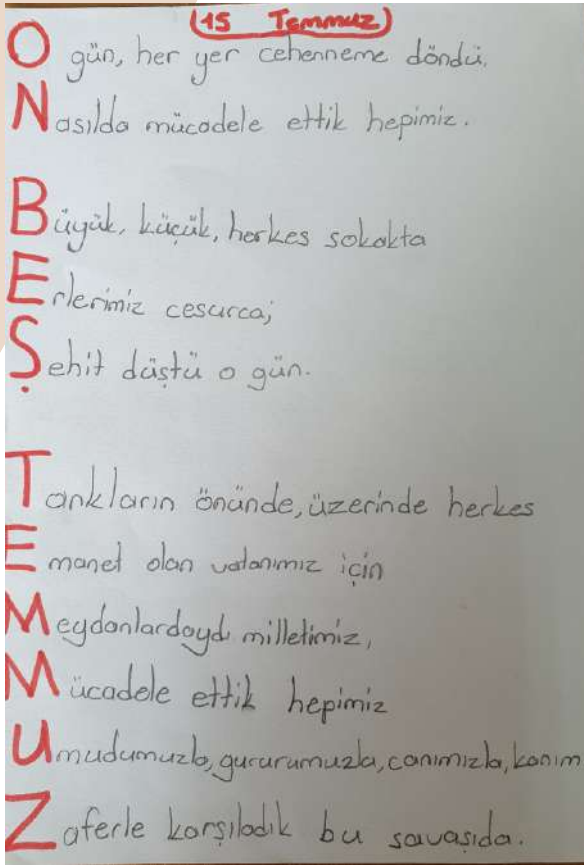 (15 Temmuz)
O gün, her yer cehenneme döndü.
Nasılda mücadele ettik hepimiz.
Büyük, küçük, herkes sokakta
Erlerimiz cesurca;
Şehit düştü o gün.
Tankların önünde, üzerinde herkes
Emanet olan vatanımız için
Meydanlardaydı milletimiz,
Mücadele ettik hepimiz
Umudumuzla, gururumuzla, canımızla, kanım
Zaferle karşıladık bu savaşıda.